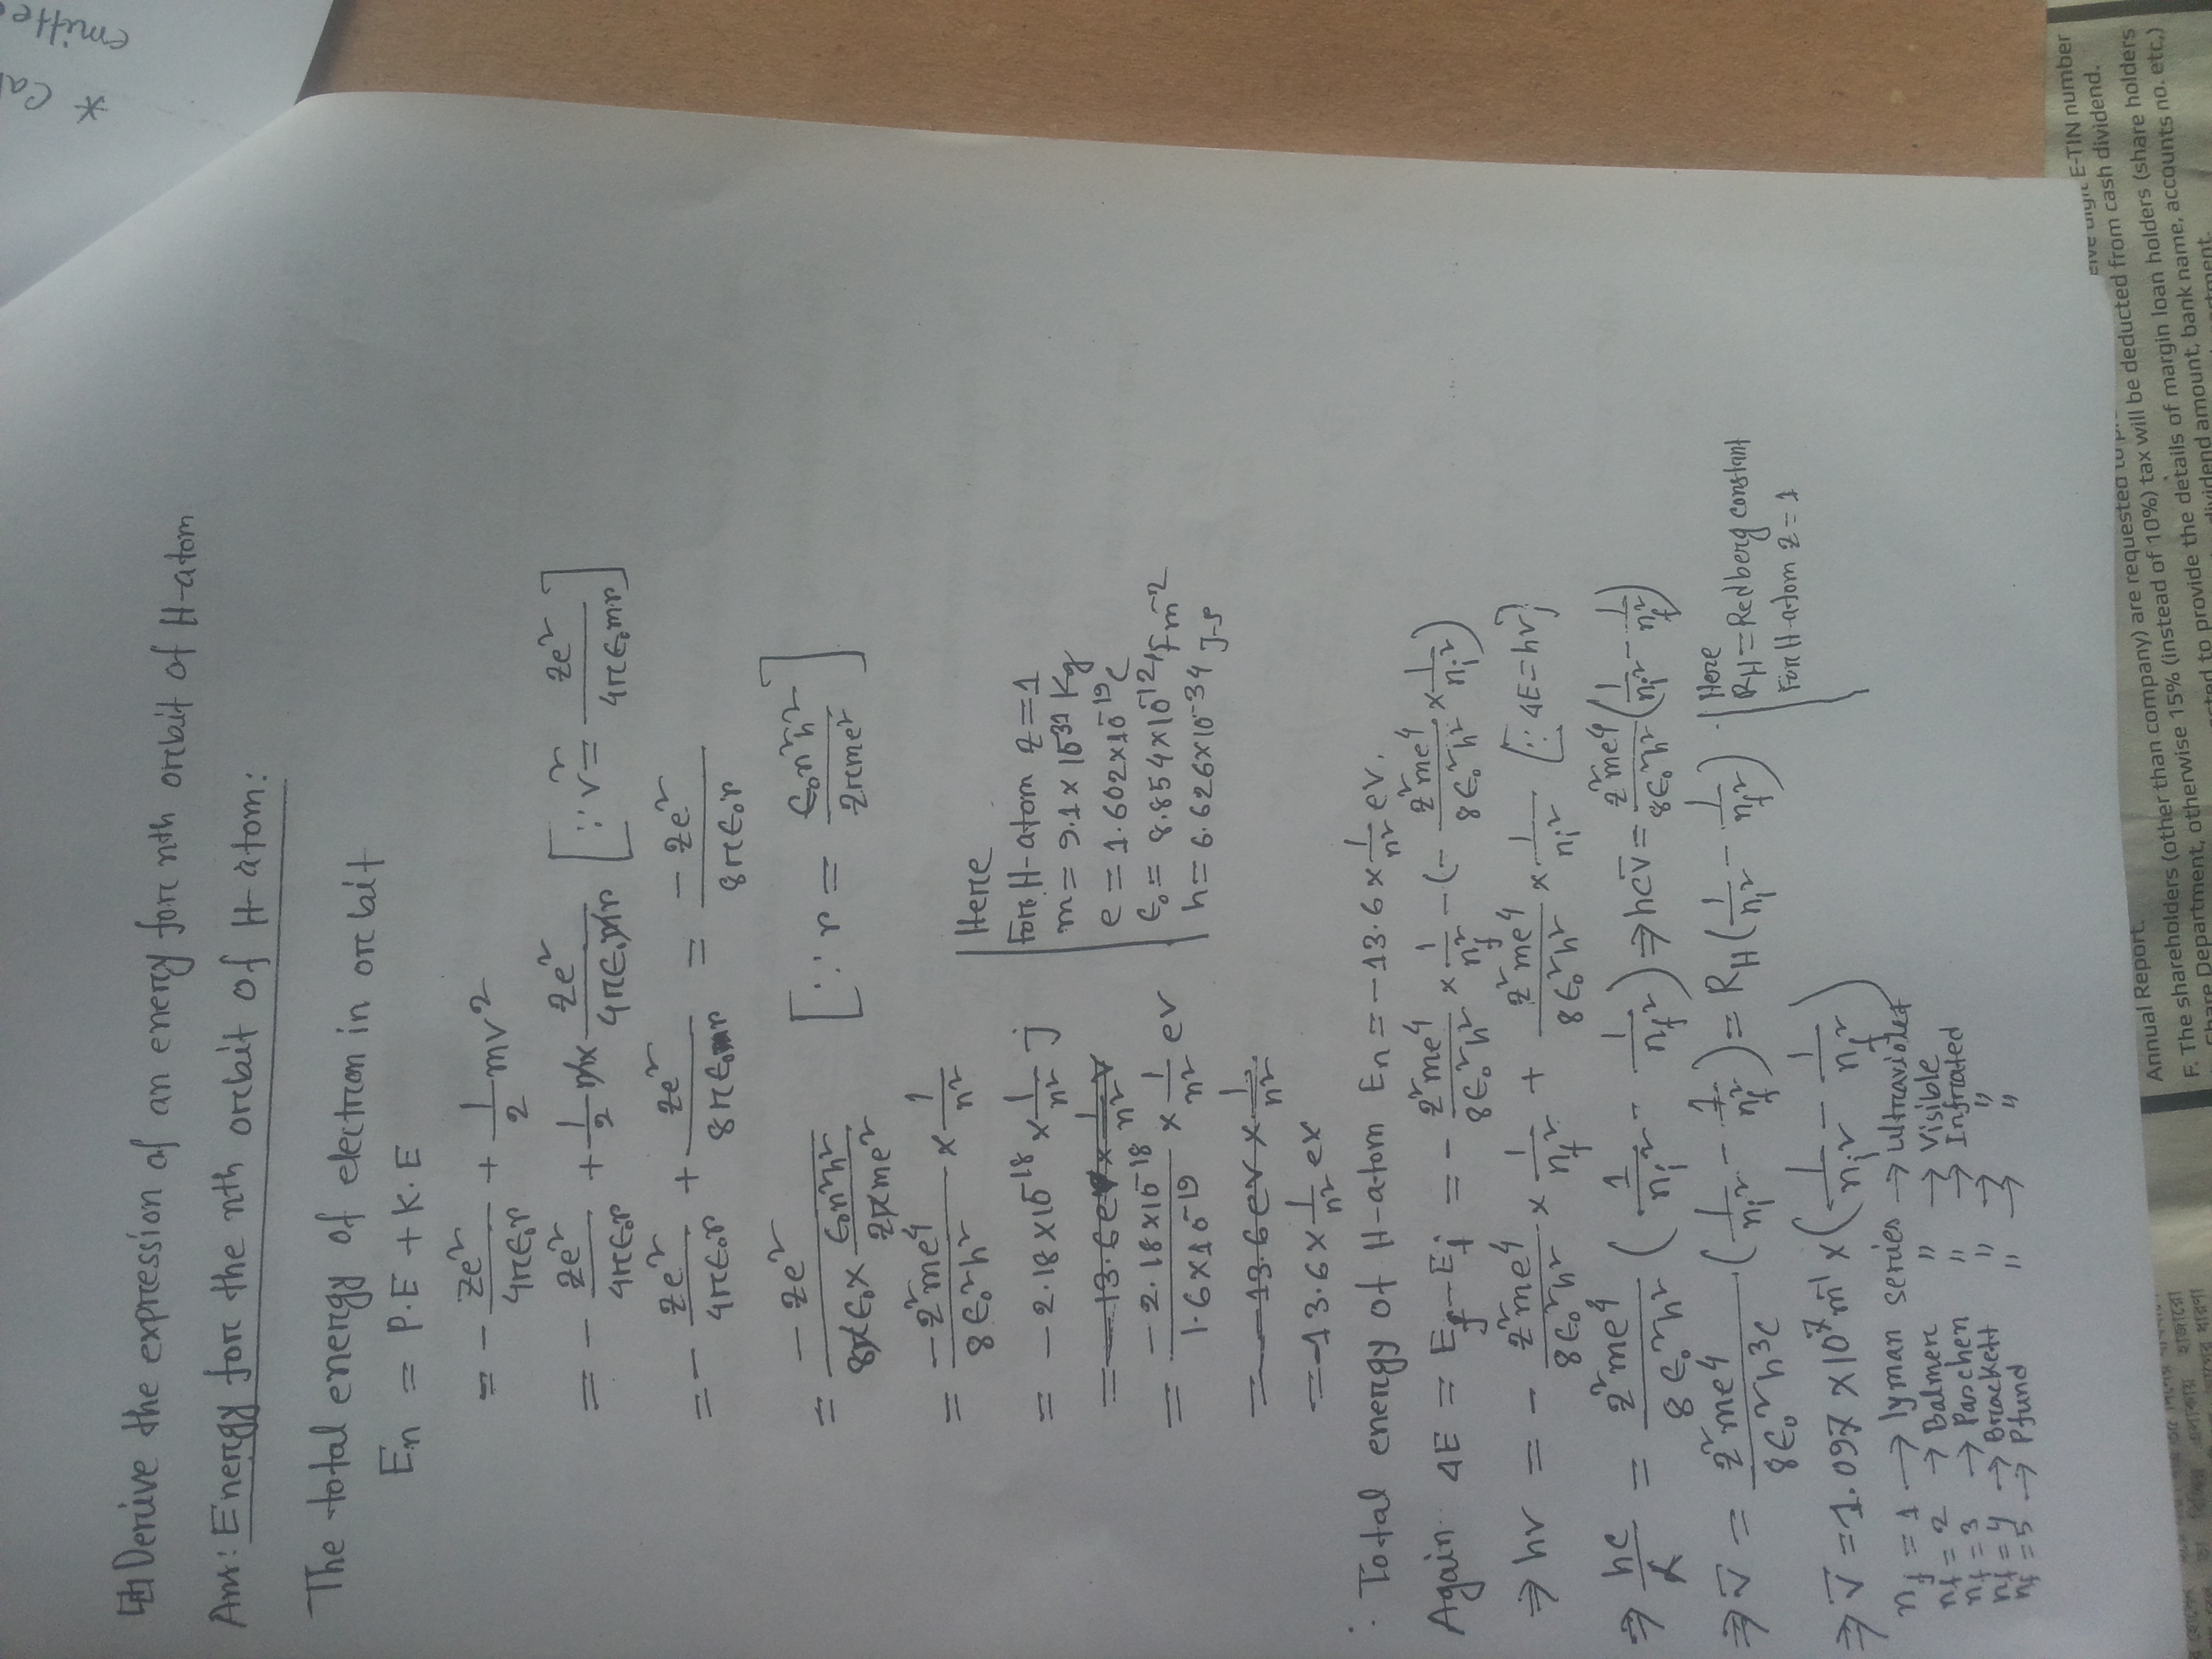 * Cal
emitte
Derive the expression of an energy for nth orbit of H-atom
Ans: Energy for the nth orbit of H-atom:
The total energy of electron in orbit
En = P.E + K.E
= - Ze²/4πε₀r + 1/2 mv²
= - Ze²/4πε₀r + 1/2 m × Ze²/4πε₀mr [∵ v² = Ze²/4πε₀mr]
= - Ze²/4πε₀r + Ze²/8πε₀r = -Ze²/8πε₀r
= -Ze²/(8πε₀ × ε₀n²h²/Zπme²) [∵ r = ε₀n²h²/Zπme²]
= -Z²me⁴/8ε₀²h² × 1/n²
= -2.18×10⁻¹⁸ × 1/n² j
= -13.6 ev × 1/n²
= -2.18×10⁻¹⁸/1.6×10⁻¹⁹ × 1/n² ev
= -13.6 ev × 1/n²
= -13.6 × 1/n² ev
Here
For H-atom Z=1
m = 9.1×10⁻³¹ Kg
e = 1.602×10⁻¹⁹C
ε₀ = 8.854×10⁻¹² Fm⁻²
h = 6.626×10⁻³⁴ J-s
∴ Total energy of H-atom En = -13.6 × 1/n² ev.
Again ΔE = Ef - Ei = - Z²me⁴/8ε₀²h² × 1/nf² - (- Z²me⁴/8ε₀²h² × 1/ni²)
⇒ hv = - Z²me⁴/8ε₀²h² × 1/nf² + Z²me⁴/8ε₀²h² × 1/ni² [∵ ΔE = hv]
⇒ hc/λ = Z²me⁴/8ε₀²h² (1/ni² - 1/nf²) ⇒ hcv̄ = Z²me⁴/8ε₀²h² (1/ni² - 1/nf²)
⇒ v̄ = Z²me⁴/8ε₀²h³c (1/ni² - 1/nf²) = RH (1/ni² - 1/nf²)
Here
RH = Redberg constant
For H-atom Z = 1
⇒ v̄ = 1.097 × 10⁷ m⁻¹ × (1/ni² - 1/nf²)
nf = 1 → lyman series → ultraviolet
nf = 2 → Balmer " → Visible
nf = 3 → Paschen " → Infrated
nf = 4 → Brackett " → "
nf = 5 → Pfund " → "
digit E-TIN number
Annual Report.
F. The shareholders (other than company) are requested to
otherwise 15% (instead of 10%) tax will be deducted from cash dividend.
Share Department,
to provide the details of margin loan holders (share holders
dividend amount, bank name, accounts no. etc.)